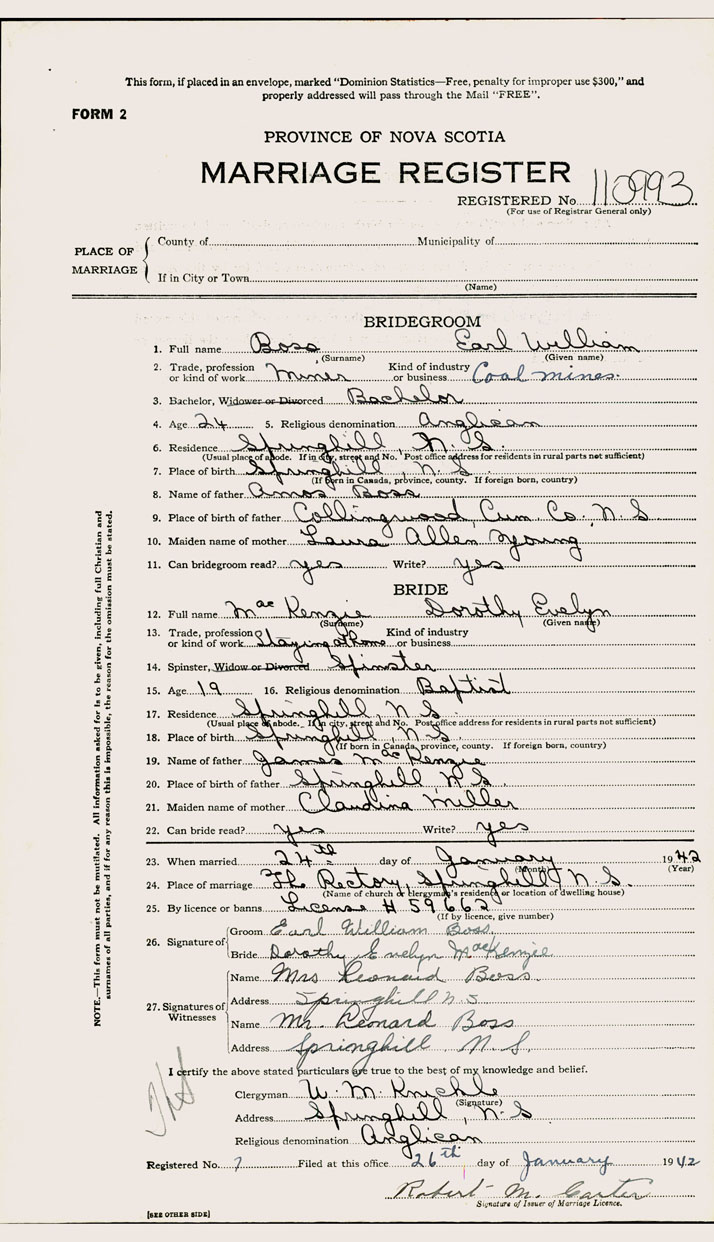 This form, if placed in an envelope, marked "Dominion Statistics—Free, penalty for improper use $300," and
properly addressed will pass through the Mail "FREE".
FORM 2
PROVINCE OF NOVA SCOTIA
MARRIAGE REGISTER
REGISTERED No. 110993
(For use of Registrar General only)
PLACE OF MARRIAGE
County of Municipality of
If in City or Town
(Name)
BRIDEGROOM
1. Full name Boss Earl William
(Surname) (Given name)
2. Trade, profession or kind of work Miner Kind of industry or business Coal mines.
3. Bachelor, Widower or Divorced Bachelor
4. Age 24 5. Religious denomination Anglican
6. Residence Springhill, N. S.
(Usual place of abode. If in city, street and No. Post office address for residents in rural parts not sufficient)
7. Place of birth Springhill, N. S.
(If born in Canada, province, county. If foreign born, country)
8. Name of father Amos Boss
9. Place of birth of father Collingwood, Cum. Co. N. S
10. Maiden name of mother Laura Allen Young
11. Can bridegroom read? yes Write? yes
BRIDE
12. Full name MacKenzie Dorothy Evelyn
(Surname) (Given name)
13. Trade, profession or kind of work Staying at home Kind of industry or business
14. Spinster, Widow or Divorced Spinster
15. Age 19 16. Religious denomination Baptist
17. Residence Springhill, N. S
(Usual place of abode. If in city, street and No. Post office address for residents in rural parts not sufficient)
18. Place of birth Springhill, N. S.
(If born in Canada, province, county. If foreign born, country)
19. Name of father James MacKenzie
20. Place of birth of father Springhill, N. S.
21. Maiden name of mother Claudina Miller
22. Can bride read? yes Write? yes
23. When married 24th day of January 1942
(Month) (Year)
24. Place of marriage The Rectory, Springhill, N. S.
(Name of church or clergyman's residence or location of dwelling house)
25. By licence or banns License # 59662
(If by licence, give number)
26. Signature of
Groom Earl William Boss.
Bride Dorothy Evelyn MacKenzie
27. Signatures of Witnesses
Name Mrs Leonard Boss.
Address Springhill N. S
Name Mr. Leonard Boss
Address Springhill, N. S.
I certify the above stated particulars are true to the best of my knowledge and belief.
Clergyman W. M. Knickle
(Signature)
Address Springhill, N. S
Religious denomination Anglican
Registered No. 7 Filed at this office 26th day of January 1942
Robert M. Carter
Signature of Issuer of Marriage Licence.
[SEE OTHER SIDE]
NOTE.—This form must not be mutilated. All information asked for is to be given, including full Christian and
surnames of all parties, and if for any reason this is impossible, the reason for the omission must be stated.